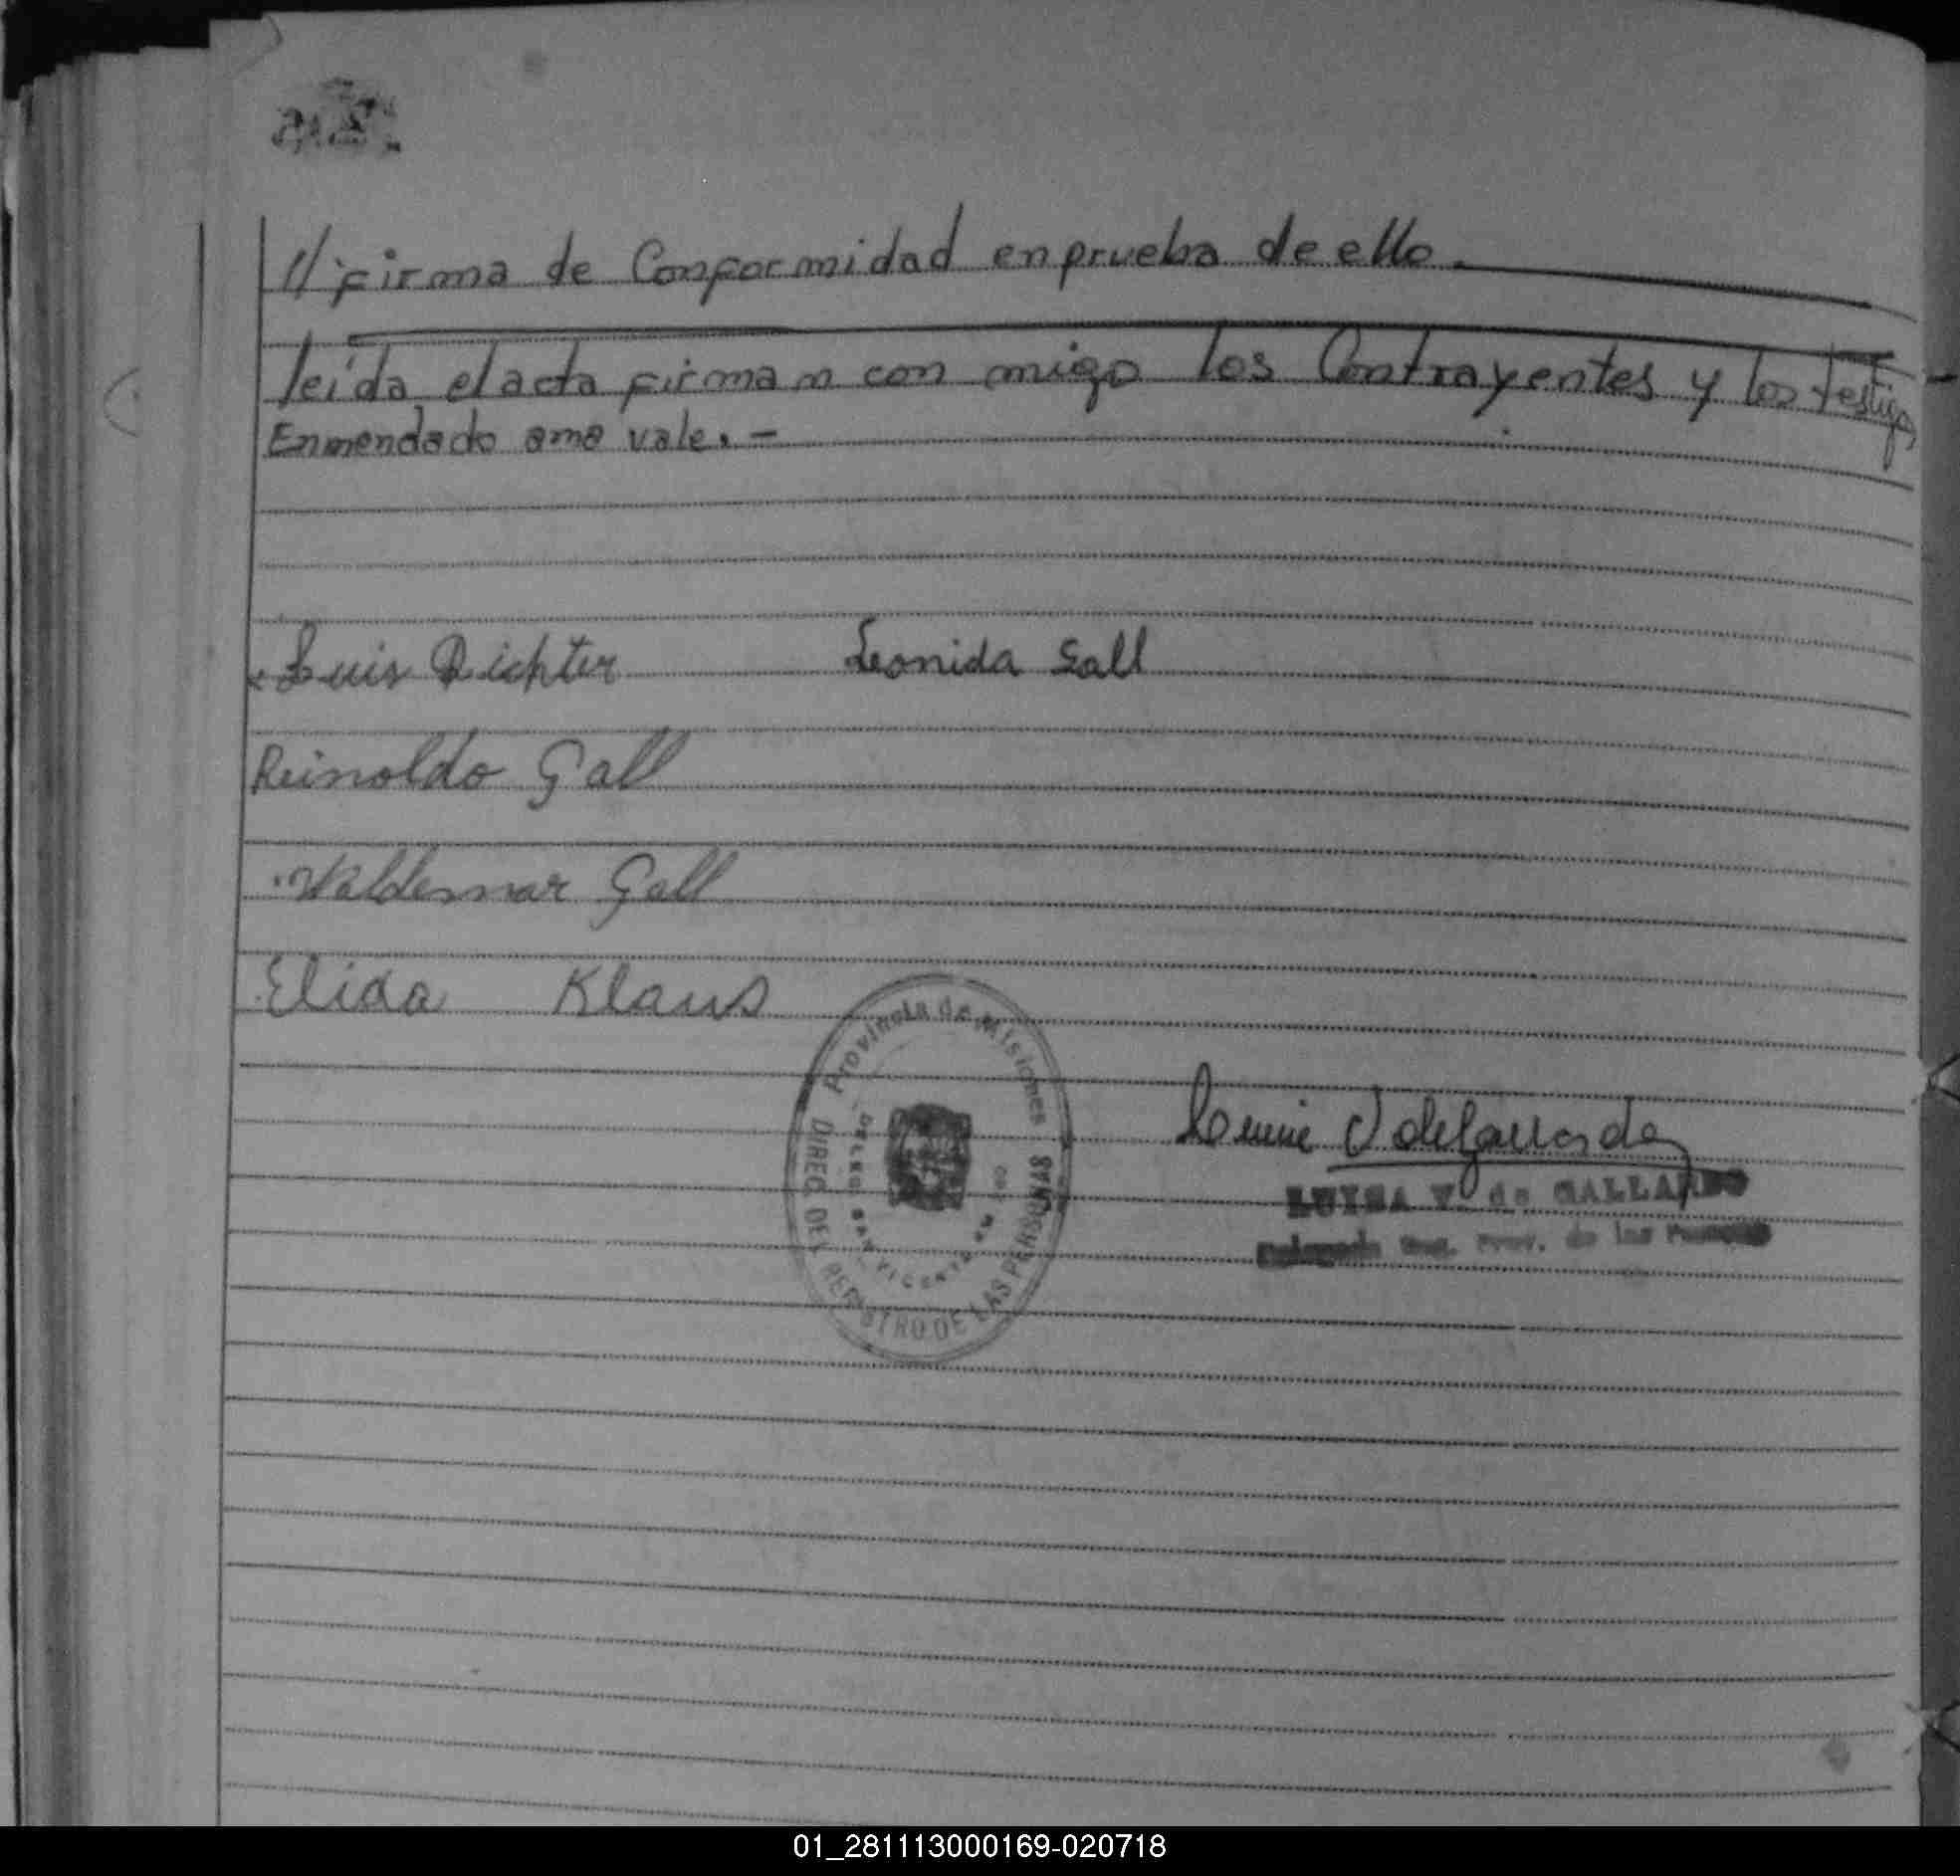 // firma de Conformidad en prueba de ello.
leída el acta firman con migo los Contrayentes y los testigos
Enmendado ama vale. –
Luis Richter Leonida Gall
Reinoldo Gall
Waldemar Gall
Elida Klaus
Provincia de Misiones
DIREC. DEL REGISTRO DE LAS PERSONAS
SAN VICENTE
LUISA V. de GALLARDO
Delegada Reg. Prov. de las Personas
01_281113000169-020718